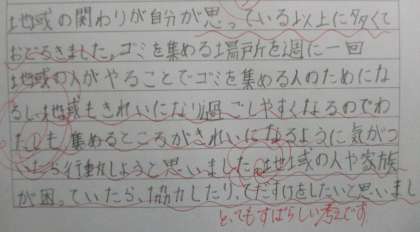 地域の関わりが自分が思っている以上に多くて
おどろきました。ゴミを集める場所を週に一回
地域の人がやることでゴミを集める人のためにな
るし地域もきれいになり過ごしやすくなるのでわ
たしも集めるところがきれいになるように気がつ
いたら行動しようと思いました。地域の人や家族
が困っていたら、協力したり、てだすけをしたいと思いまし
とてもすばらしい考えです